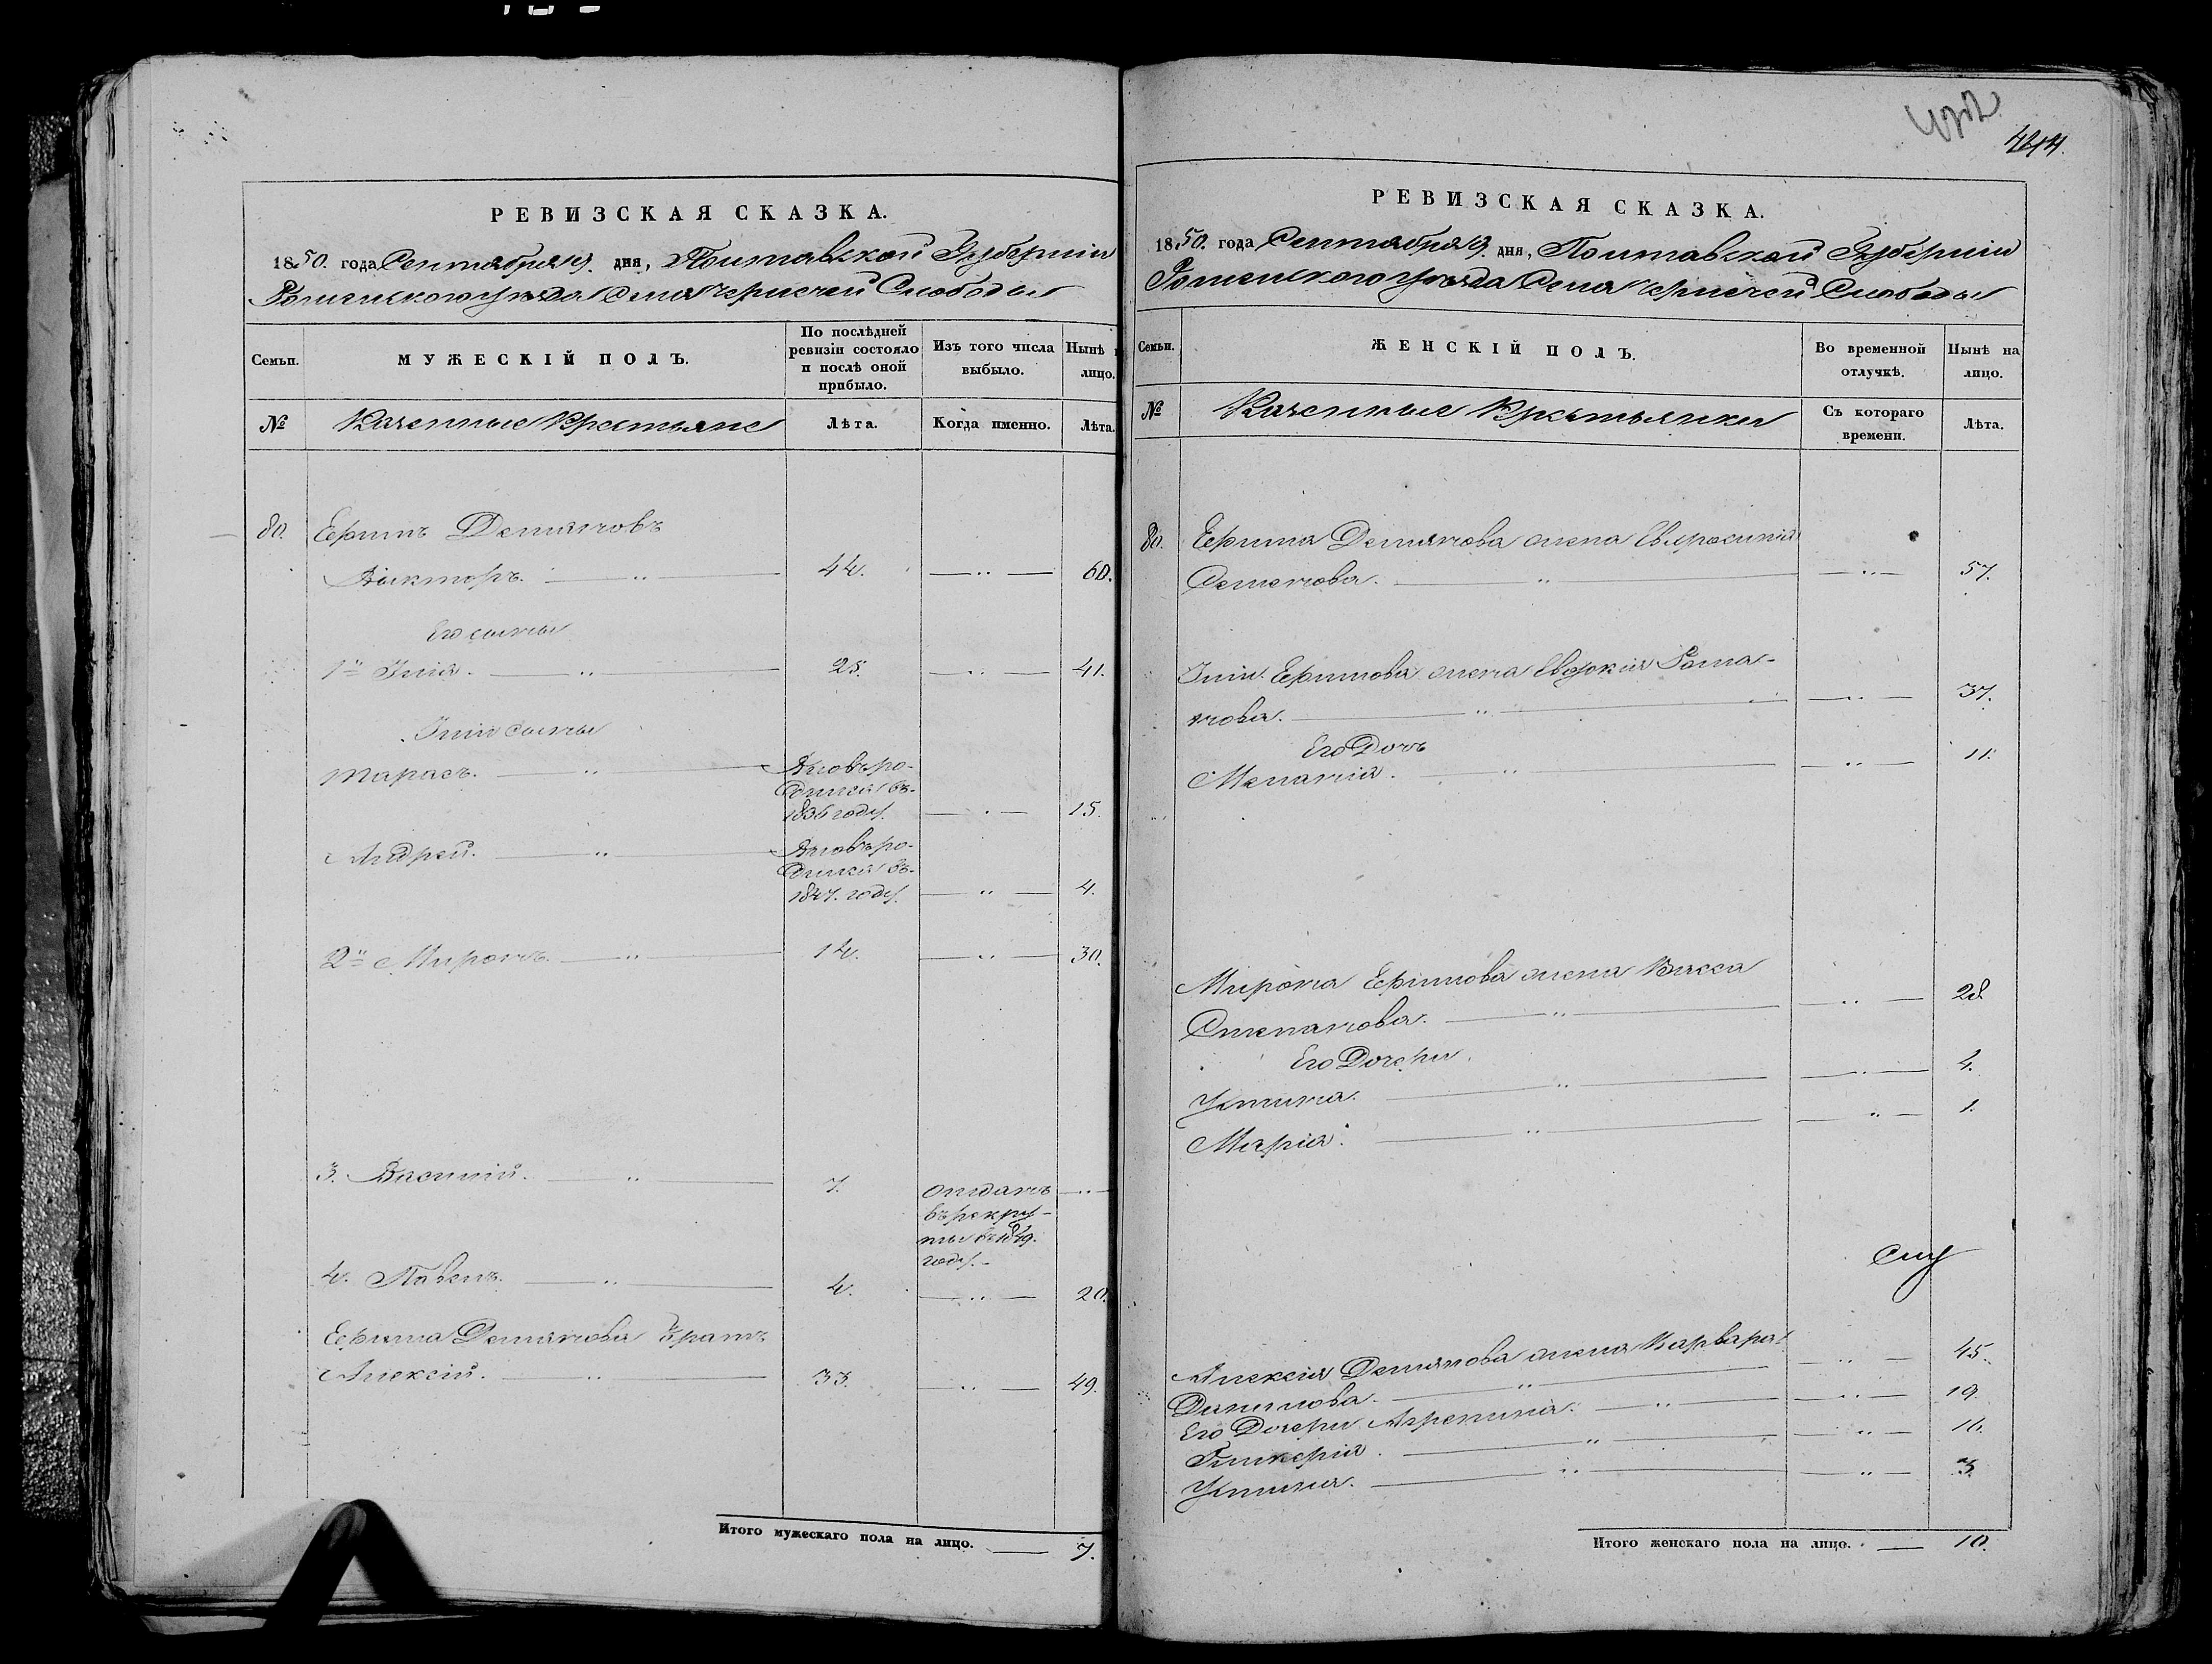 444.
РЕВИЗСКАЯ СКАЗКА.
1850. года Сентября 19. дня, Полтавской Губерніи
Роменского уѣзда Села Чернечей Слободы
Семьи.
МУЖЕСКІЙ ПОЛЪ.
По послѣдней ревизіи состояло и послѣ оной прибыло.
Изъ того числа выбыло.
Нынѣ
лицо.
№
Казенные Крестьяне
Лѣта.
Когда именно.
Лѣта.
80.
Ефимъ Демяновъ
Викторъ. 44. 60.
Его сыны
1й Илія. 25. 41.
Иліи сыны
Тарасъ. Вновь ро-
дился въ
1836 году. 15.
Андрей. Вновь ро-
дился въ
1847. году. 4.
2й Миронъ. 14. 30.
3. Василий. 7. отданъ
въ рекру-
ты въ 1849.
году.
4. Павелъ. 4. 20.
Ефима Демянова братъ
Алексій. 33. 49.
Итого мужескаго пола на лицо. 7.
РЕВИЗСКАЯ СКАЗКА.
1850. года Сентября 19. дня, Полтавской Губерніи
Роменского уѣзда Села Чернечей Слободы
Семьи.
ЖЕНСКІЙ ПОЛЪ.
Во временной отлучкѣ.
Нынѣ на лицо.
№
Казенные Крестьянки
Съ котораго времени.
Лѣта.
80.
Ефима Демянова жена Евфросинія
Семенова. 57.
Иліи Ефимова жена Евдокія Рома-
нова. 37.
Его Дочь
Меланія. 11.
Мирона Ефимова жена Васса
Степанова. 28
Его Дочери
Устина. 4.
Марія. 1.
Алексія Демянова жена Варвара
Данилова. 45.
Его Дочери Агрепина. 19.
Гликерія. 16.
Устина. 3.
Итого женскаго пола на лицо. 10.